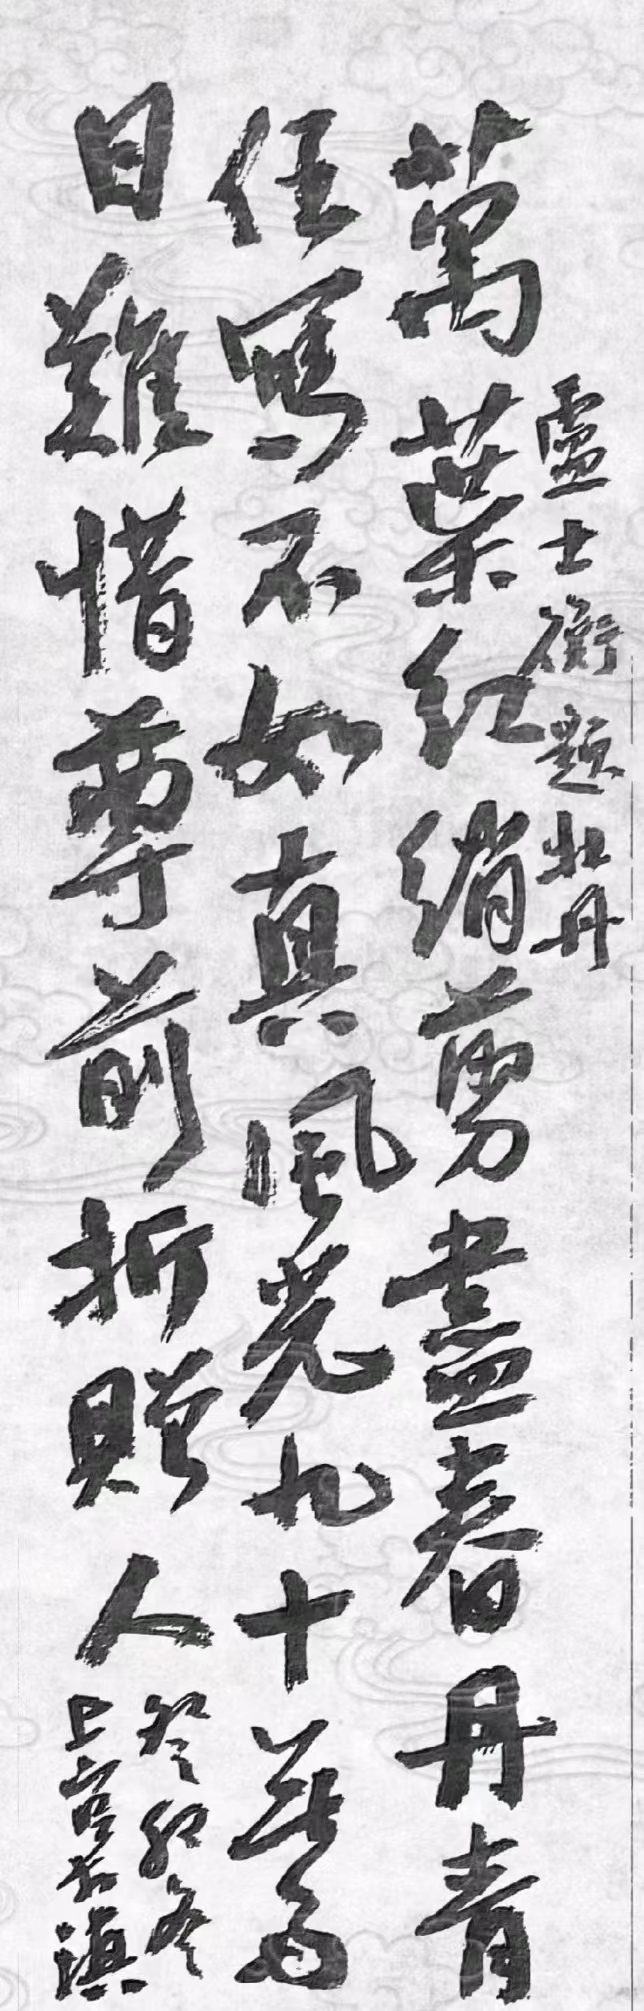 萬葉紅綃剪盡春丹青
任寫不如真風光九十無多
日難惜尊前折贈人
盧士衡題牡丹
癸卯冬
上官
滇